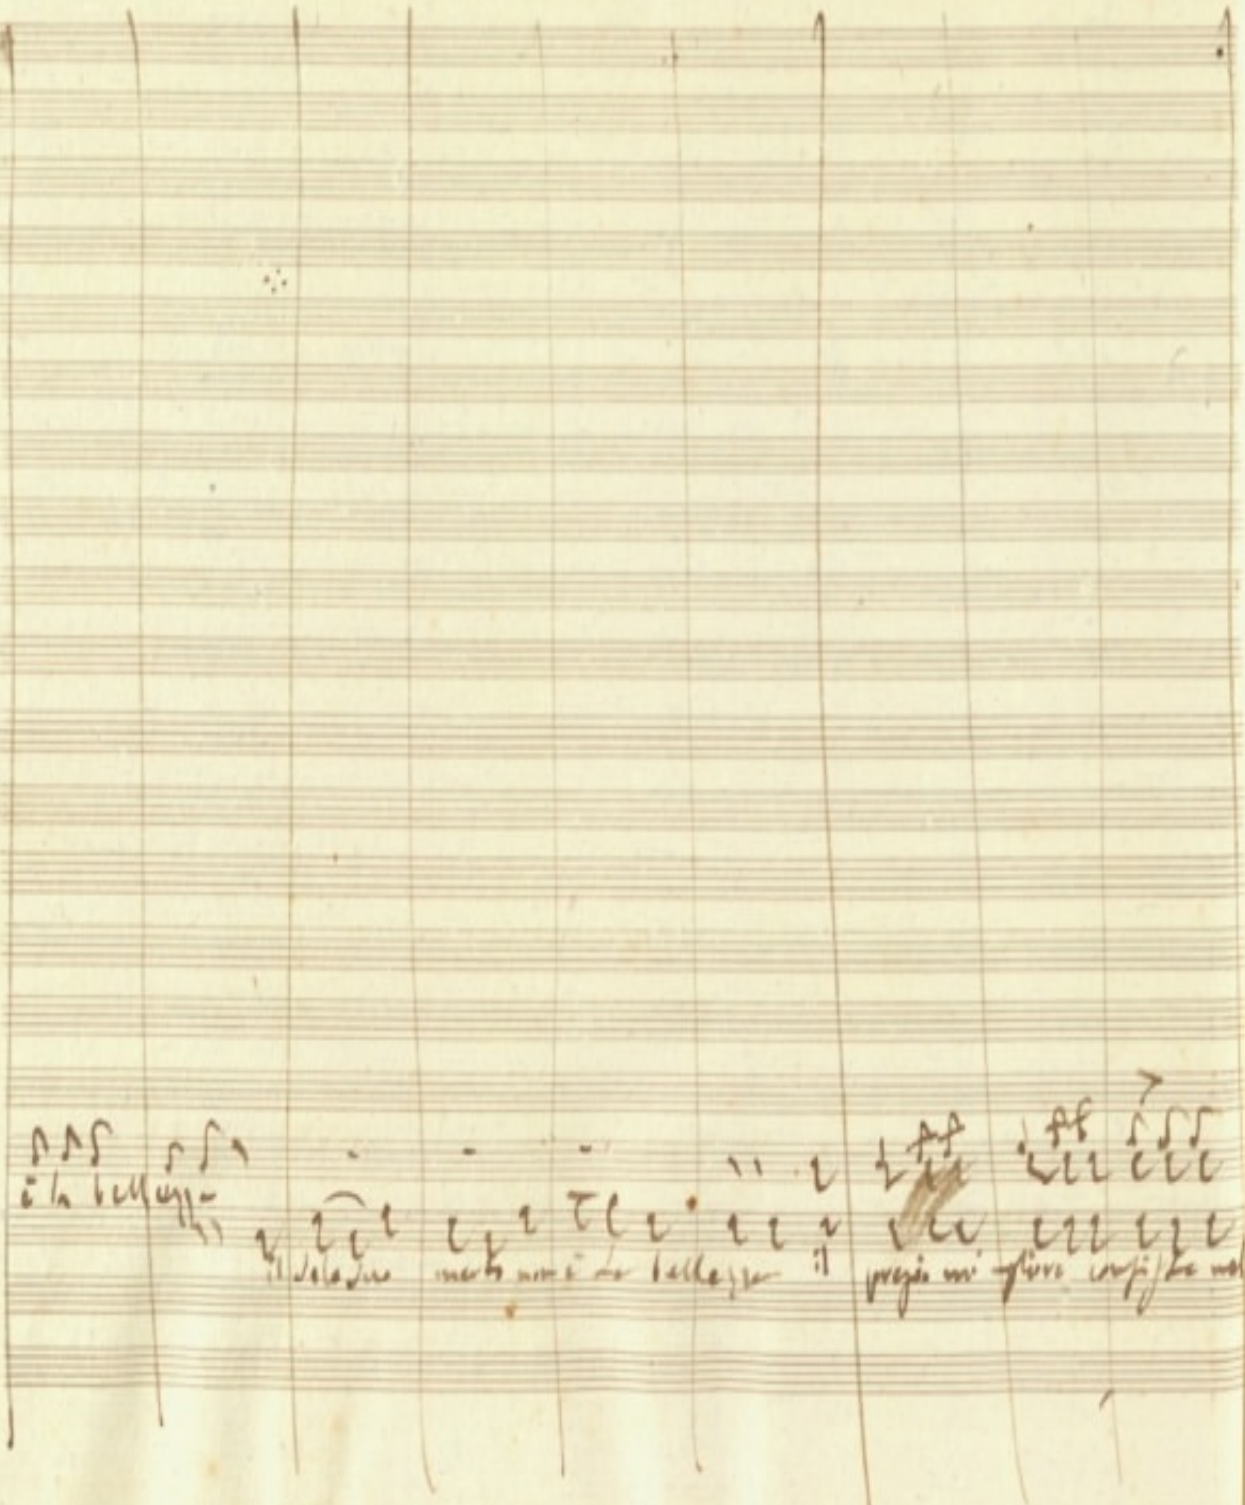 è la bellezza
il solo suo merto non è la bellezza il pregio migliore consiste nel